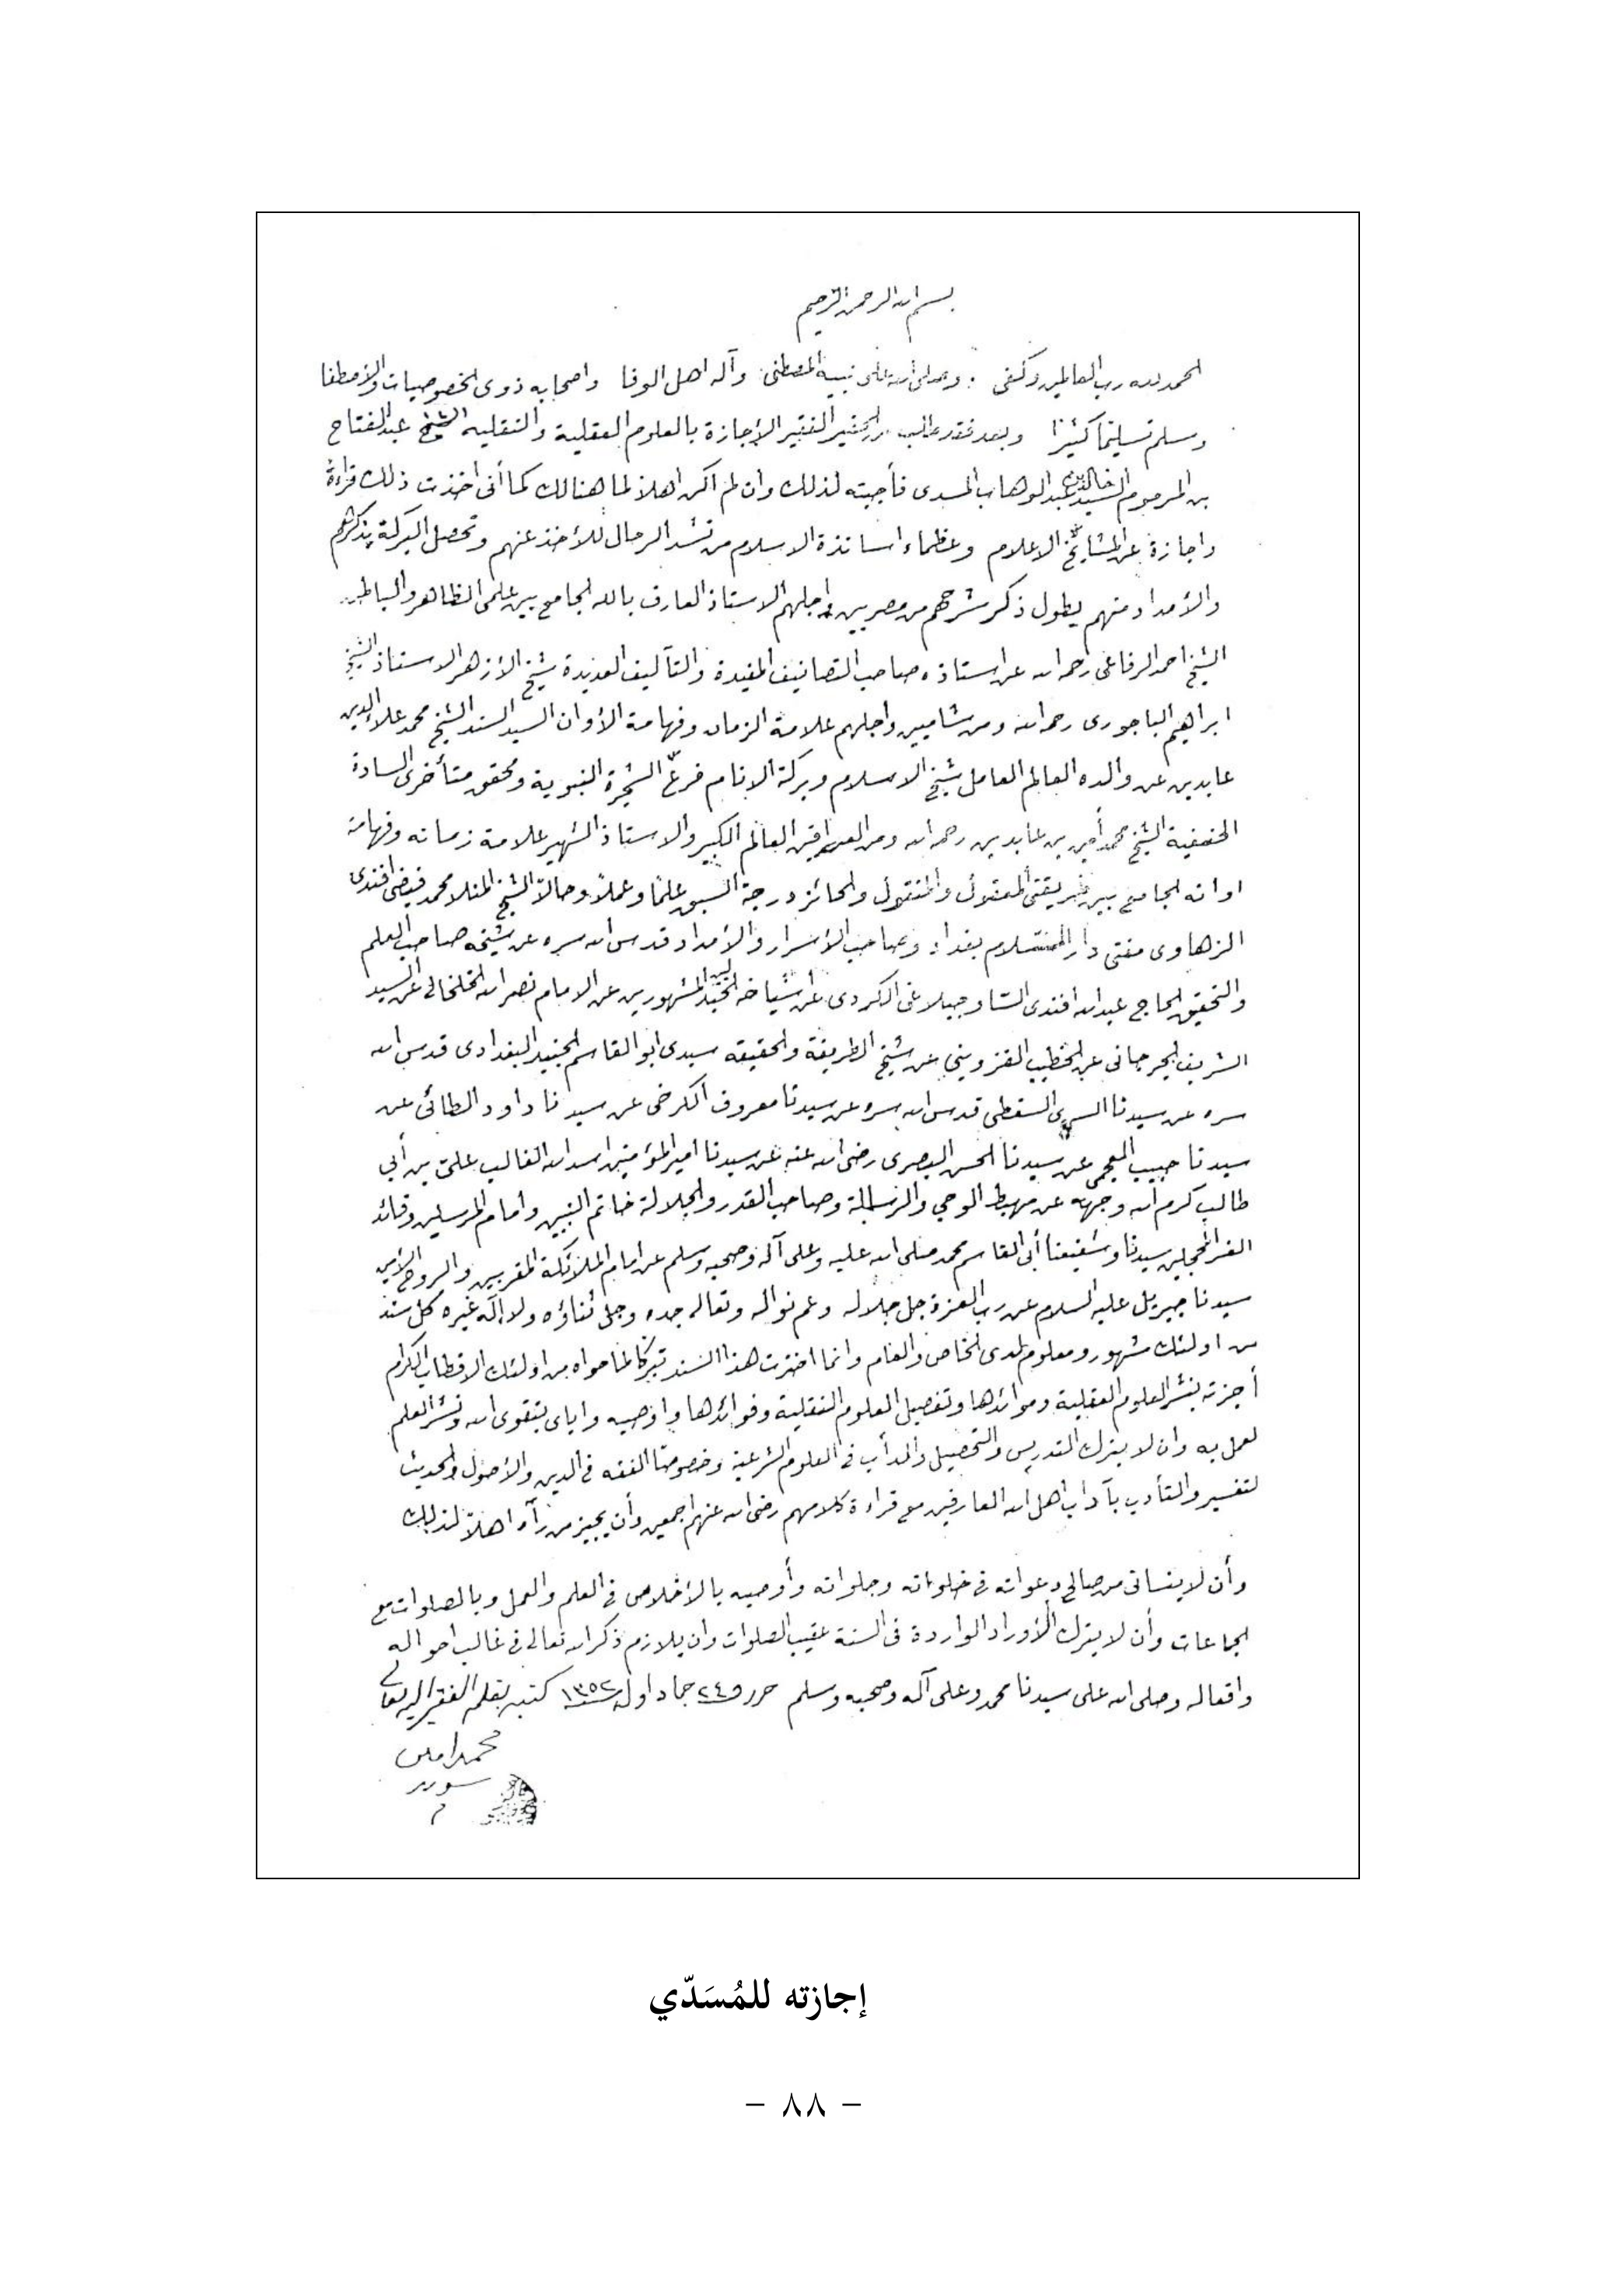 بسم الله الرحمن الرحيم
الحمد لله رب العالمين وكفى . وصلى الله على نبيه المصطفى وآله اهل الوفا واصحابه ذوى الخصوصيات والاصطفا
وسلم تسليمًا كثيرًا وبعد فقد طالب من الحقير الفقير الإجازة بالعلوم العقلية والنقليه الشيخ عبد الفتاح
بن المرحوم السيد خالد بن عبد الوهاب المسدى فأجبته لذلك وان لم اكن اهلاً لما هنالك كما أنى اخذت ذلك قراءة
واجازة عن المشايخ الاعلام وعظماء اساتذة الاسلام من تشد الرحال للأخذ عنهم وتحصل البركة بذكرهم
والأمداد منهم يطول ذكر شرحهم من مصريين واجلهم الاستاذ العارف بالله الجامع بين علمى الظاهر والباطن
الشيخ احمد الرفاعى رحمه الله عن استاذه صاحب التصانيف المفيدة والتآليف العديدة شيخ الأزهر الاستاذ الشيخ
ابراهيم الباجورى رحمه الله ومن شاميين واجلهم علامة الزمان وفهامة الأوان السيد السند الشيخ محمد علاء الدين
عابدين عن والده العالم العامل شيخ الاسلام وبركة الانام فرع الشجرة النبوية ومحقق متأخرى السادة
الحنفية الشيخ محمد أمين بن عابدين رحمه الله ومن العراقين العالم الكبير والاستاذ الشهير علامة زمانه وفهامة
اوانه الجامع بين طريقتى المعقول والمنقول والحائز درجة السبق علمًا وعملاً وحالاً الشيخ المنلا محمد فيضى افندى
الزهاوى مفتى دار السلام بغداد وصاحب الأسرار والأمداد قدس الله سره عن شيخه صاحب العلم
والتحقيق الحاج عبد الله افندى الكردى عن أشياخه المشهورين عن الامام نصر الله الخلخالى عن السيد
الشريف الجرجانى عن الخطيب القزوينى عن شيخ الطريقة والحقيقه سيدى ابو القاسم الجنيد البغدادى قدس الله
سره عن سيدنا السرى السقطى قدس الله سره عن سيدنا معروف الكرخى عن سيدنا داود الطائى عن
سيدنا حبيب العجمى عن سيدنا الحسن البصرى رضى الله عنه عن سيدنا امير المؤمنين اسد الله الغالب على بن أبي
طالب كرم الله وجهه عن مهبط الوحي والرسالة وصاحب القدر والجلالة خاتم النبيين وامام المرسلين وقائد
الغر المحجلين سيدنا وشفيعنا أبى القاسم محمد صلى الله عليه وعلى آله وصحبه وسلم عن امام الملائكة المقربين والروح الأمين
سيدنا جبريل عليه السلام عن رب العزة جل جلاله وعم نواله وتعالى جده وجل ثناؤه ولا اله غيره كل سند
من اولئك مشهور ومعلوم لدى الخاص والعام وانما اخترت هذا السند تبركًا لما حواه من اولئك الاقطاب الكرام
أجزته بنشر العلوم العقلية وموائدها وتفصيل العلوم النقلية وفوائدها واوصيه واياى بتقوى الله ونشر العلم
لعمل به وان لا يترك التدريس والتحصيل والدأب فى العلوم الشرعية وخصوصا الفقه فى الدين والأصول والحديث
لتفسير والتأدب بآداب اهل الله العارفين مع قراءة كلامهم رضى الله عنهم اجمعين وأن يجيز من رآه اهلاً لذلك
وأن لا ينسانى من صالح دعواته فى خلواته وجلواته وأوصيه بالأخلاص فى العلم والعمل وبالصلوات مع
لجماعات وأن لا يترك الأوراد الواردة فى السنة عقيب الصلوات وان يلازم ذكر الله تعالى فى غالب احواله
وافعاله وصلى الله على سيدنا محمد وعلى آله وصحبه وسلم حرر فى ٢٤ جماد اول سنة ١٣٥٢ كتبه بقلمه الفقير اليه تعالى
محمد امين
سويد
إجازته للمُسَدّي
- ٨٨ -